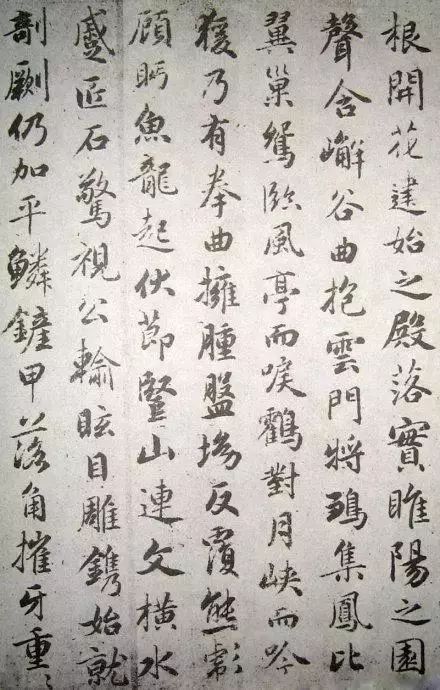 根開花建始之殿落實睢陽之園
聲含嶰谷曲抱雲門將鶵集鳳比
翼巢鴛臨風亭而唳鶴對月峽而吟
猨乃有拳曲擁腫盤坳反覆熊彪
顧眄魚龍起伏節豎山連文橫水
蹙匠石驚視公輸眩目雕鐫始就
剞劂仍加平鱗鏟甲落角摧牙重〻